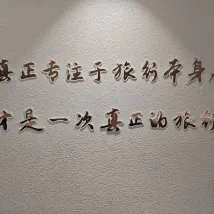 真正专注于旅行本身
才是一次真正的旅行